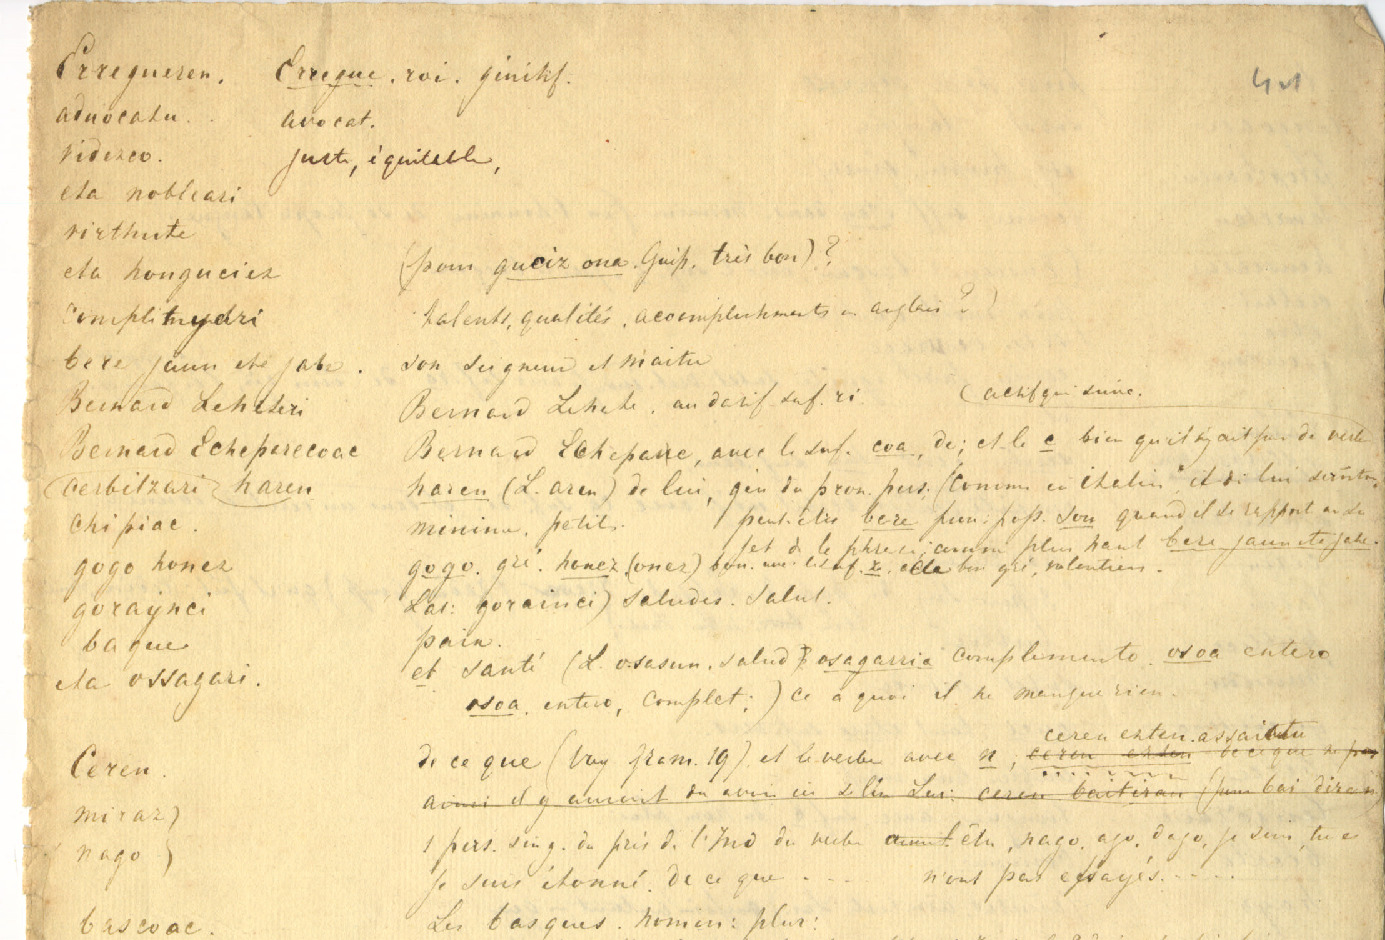 Erregueren. Erregue. roi. génitif.
advocatu. avocat.
videzco. juste, équitable,
eta nobleari
virthute
eta honguciez (pour gueiz ona. Guip. très bon) ?
complituyari talents, qualités, accomplishments en anglais ? )
bere jaun eta jabe. son seigneur et maitre
Bernard Leheteri Bernard Lehete. au datif suf. ri.
(actif qui suive.
Bernard Echeparecoac Bernard Echepare, avec le suf. coa, de; et le c bien qu'il s'agit pas de verbe
(berbitzari) haren haren (L. aren) de lui, gén du pron. pers. (comme en italien
chipiac. minime, petit. peut-être bere pron: pos. son quand il se rapport au
de la phrase; comme plus haut bere jaun eta jabe.
gogo honez gogo. gré. honez (onez) bon. avec le suf. z. de bon gré, volontiers.
goraynci Lar: gorainci) saludes. Salut.
baque paix.
eta ossagari. et santé (L. osasun. salud; osagarria complemento. osoa entero
osoa. entero, complet;) ce a quoi il ne manque rien.
ceren exten. assaiatu
Ceren. de ce que (Voy gram. 19) et le verbe avec n, ceren exten de ce que ne pas
ainsi il y aurait du avoir en Lar: ceren baitiran (pour bai diran)
miraz)
nago ) 1 pers. sing. du prés de l'Ind du verbe être, nago, ago, dago, je suis, tu e
je suis étonné. de ce que .... n'ont pas essayés.....
bascoac. Les basques. nomin: plur: